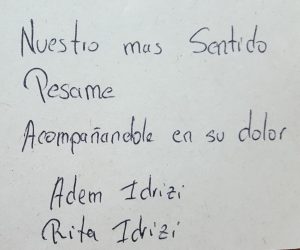 Nuestro mas Sentido
Pesame
Acompañandole en su dolor
Adem Idrizi
Rita Idrizi